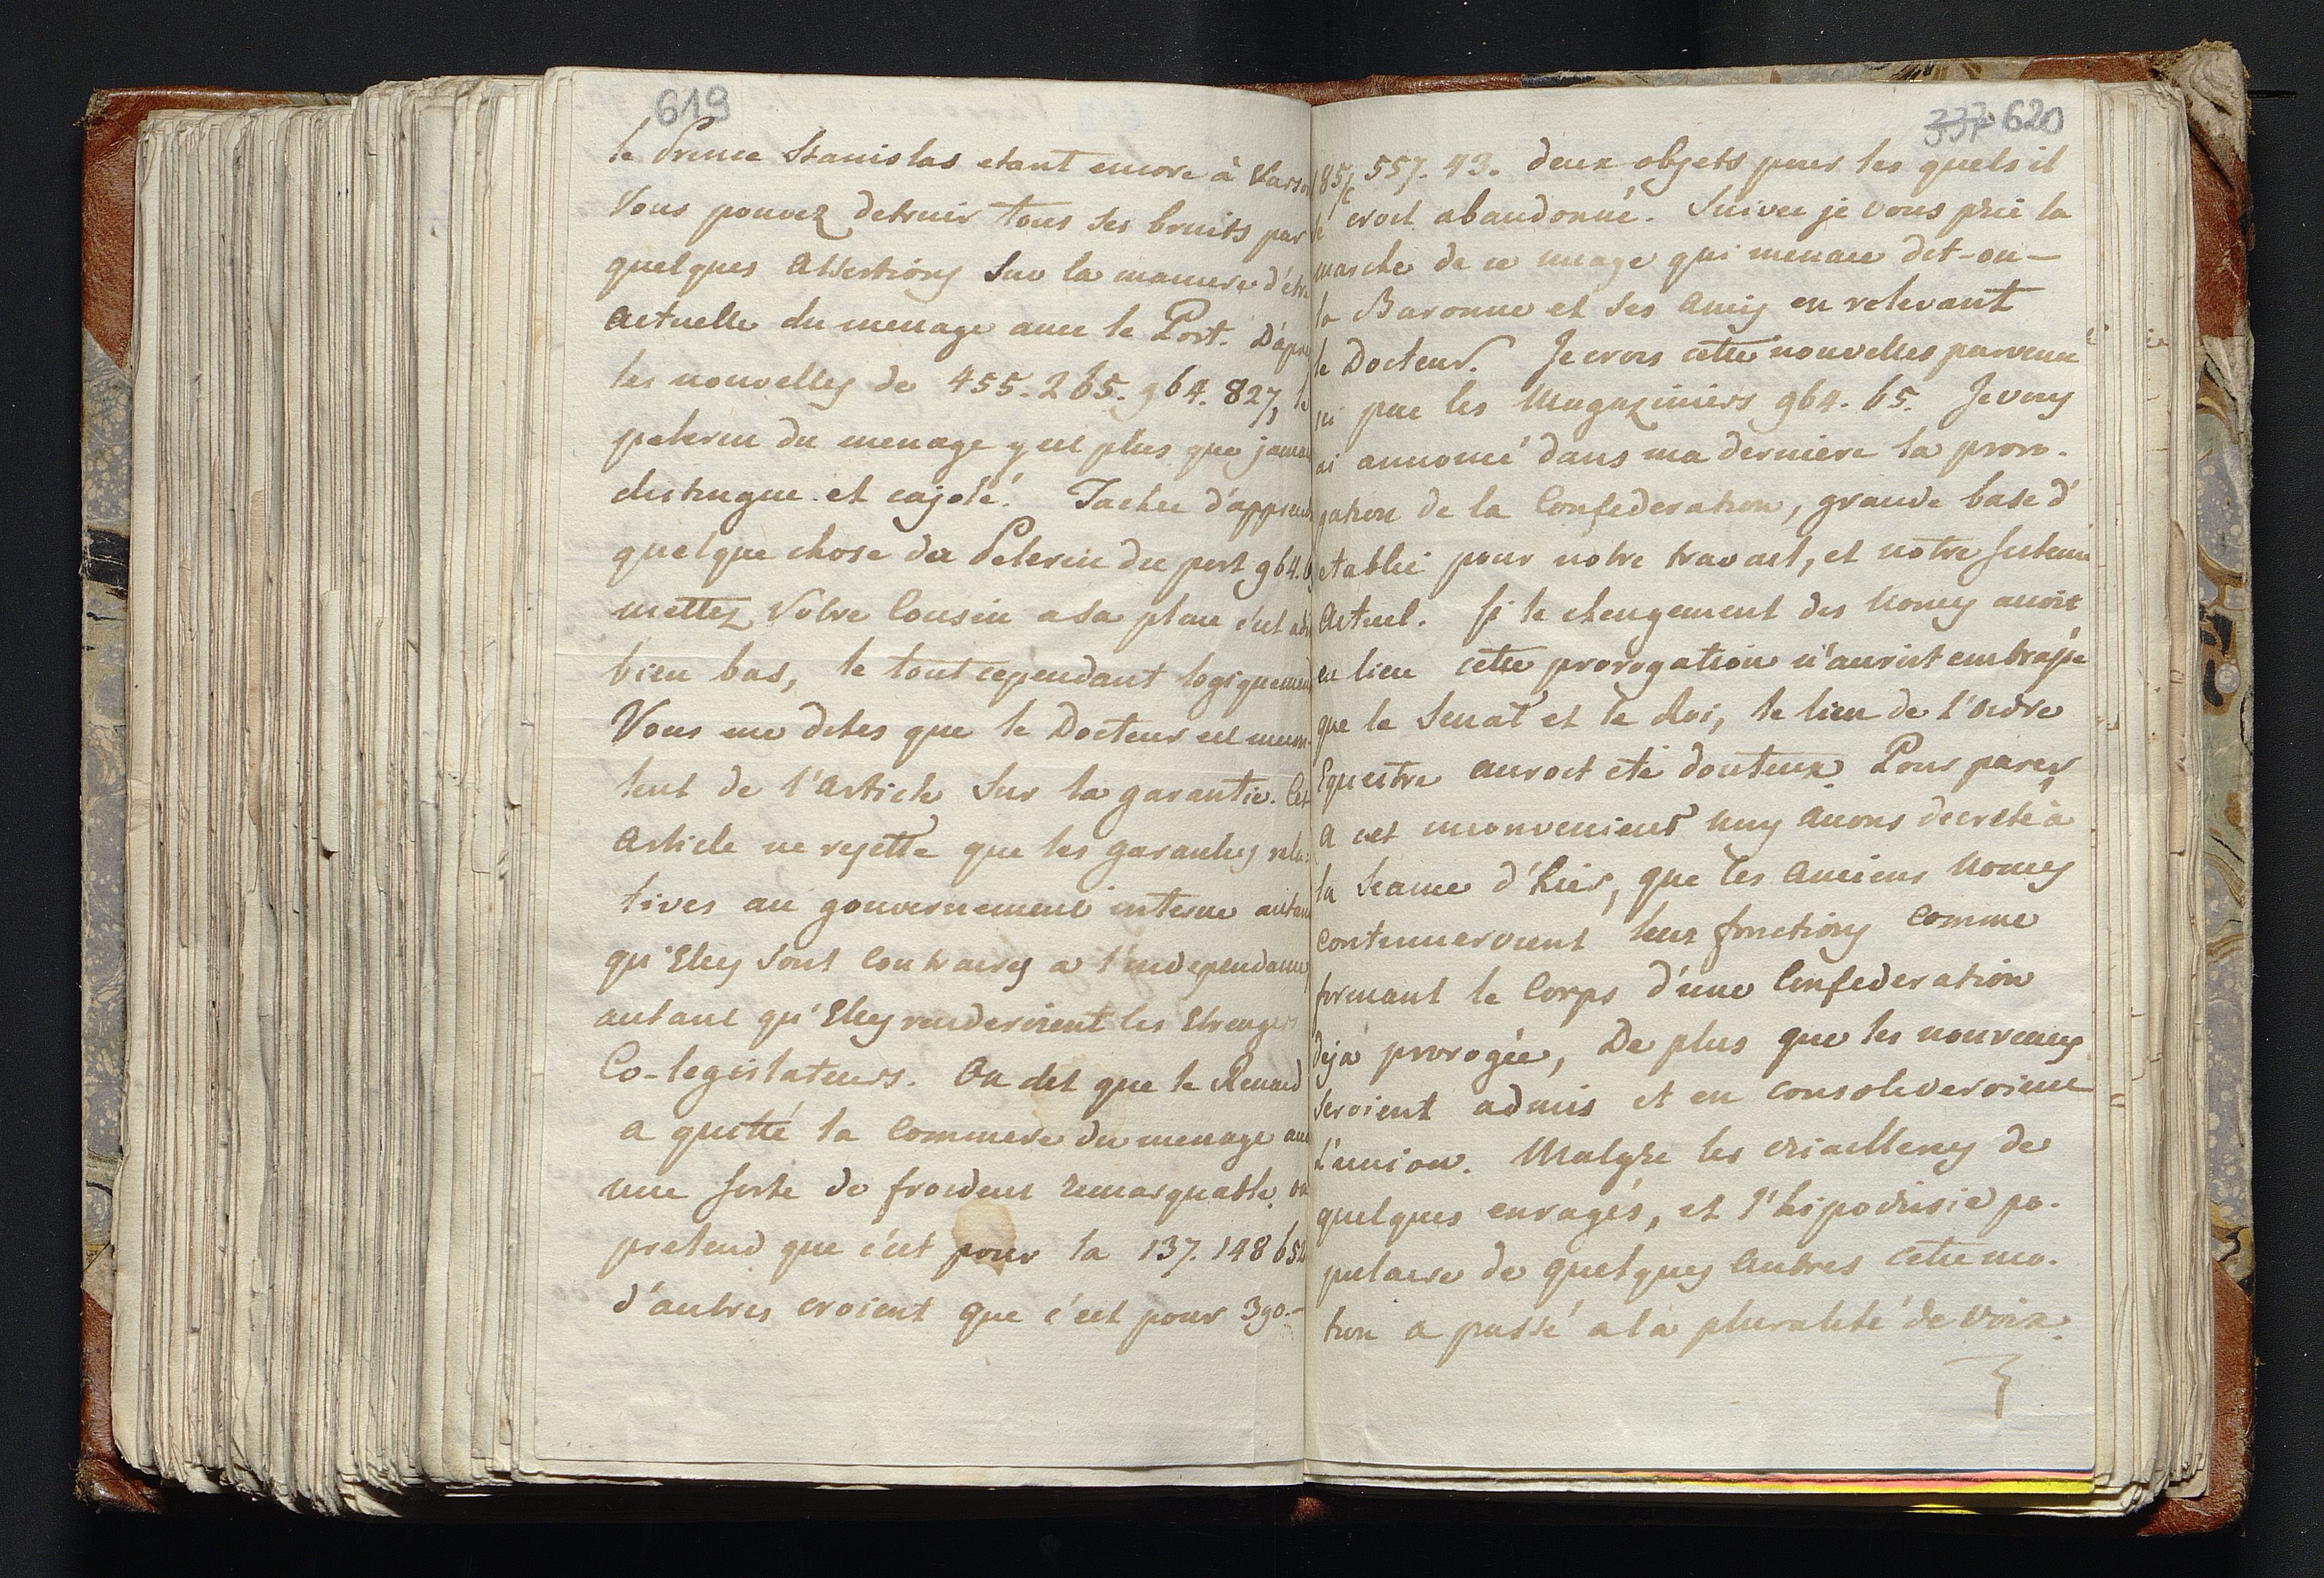 619
le Prince Stanislas etant encore à Varso
Vous pouvez detruir tous ses bruits par
quelques Assertions sur la maniere d'étre
actuelle du menage avec le Port. D'apres
les nouvelles de 455. 265. 964. 827, le
pelerin du menage y est plus que jamais
distingue et cajolé. Tachez d'apprend
quelque chose du Pelerin du port 964. 6
mettez Votre Cousin a sa place c'est adi
bien bas, le tout cependant logiquement
Vous me dites que le Docteur est mecon-
tent de l'Article sur la garantie. Cet
Article ne rejette que les garanties rela-
tives au gouvernement interne autant
qu'Elles sont Contraires a l'independance
autant qu'Elles renderoient les Etrangers
Co-legislateurs. On dit que le Renard
a quitté la Commere du menage avec
une sorte de froideur remarquable, on
pretend que c'est pour la 137. 148 65
d'autres croient que c'est pour 390.-
337 620
185/ 557. 43. deux objets pour les quels il
se croit abandonné. Suivez je vous prie la
marche de ce nuage qui menace dit-on-
la Baronne et ses Amis en relevant
le Docteur. Je crois cette nouvelles parvenue
ici par les Magaziniers 964. 65. Je vous
ai annoncé dans ma derniere la proro-
gation de la Confederation, grande base d'
etablie pour notre travail, et notre sisteme
Actuel. Si le changement des Nonces avoit
eu lieu cette prorogation n'auroit embrassé
que le Senat et le Roi, le lien de l'Ordre
Equestre auroit eté douteux. Pour parer
a cet inconvenient nous avons decreté à
la Seance d'hier, que les Anciens Nonces
continueroient leur fonctions comme
formant le Corps d'une Confederation
deja prorogée, De plus que les nouveaux
seroient admis et en consolideroient
l'union. Malgre les criailleries de
quelques enragés, et l'hipocrisie po-
pulaire de quelques Autres cette mo-
tion a passé a la pluralité de voix.